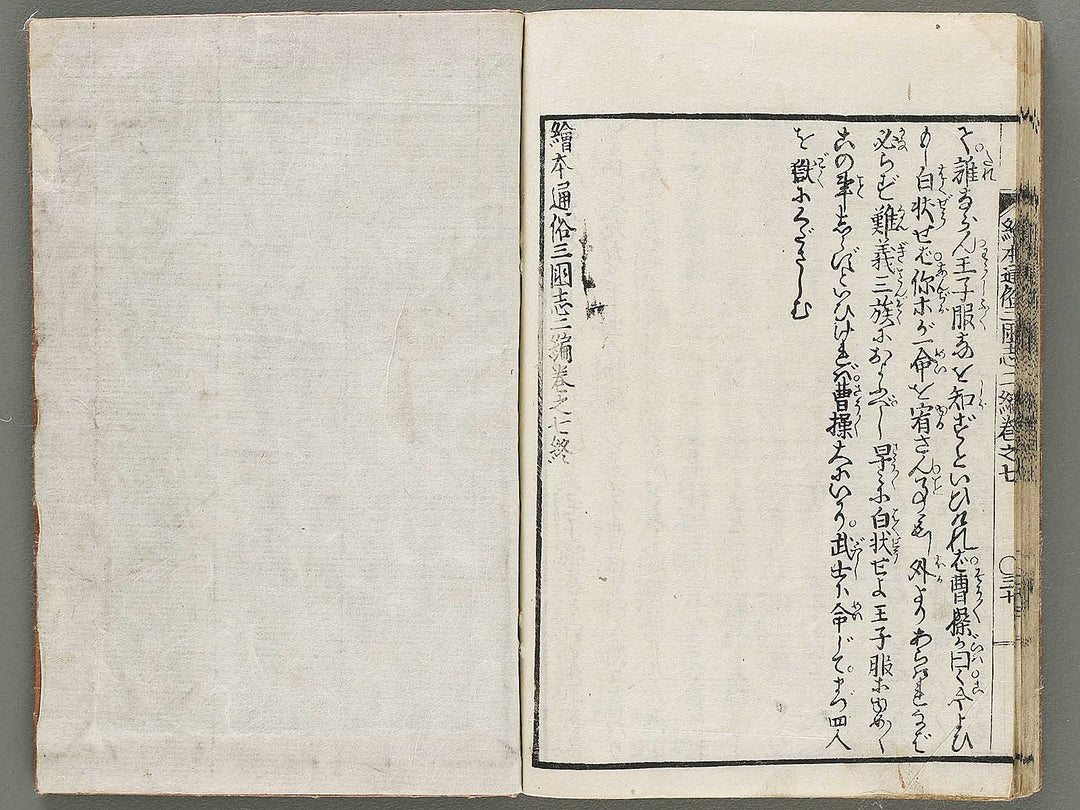 繪本通俗三國志二編卷之七 〇三十
て誰ならん王子服を知ずといひければ曹操が曰く今よひ
もし白状せば你等が一命を宥さん外よりあらはれなば
必らず難義三族におよぶべし早々に白状せよ王子服等ゆめ〳〵
この事しらずといひければ曹操大にいかり武士に命じてまづ四人
を獄にくださしむ
繪本通俗三國志二編卷之七終